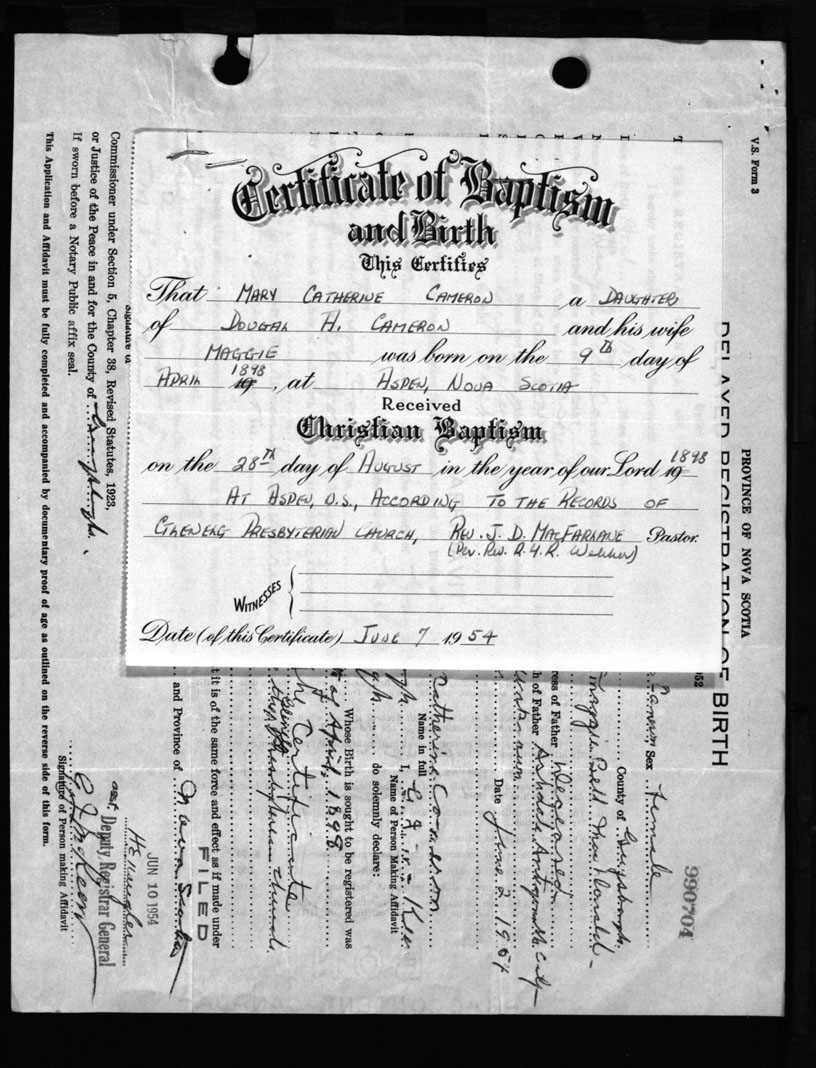 Certificate of Baptism
and Birth
This Certifies
That MARY CATHERINE CAMERON a DAUGHTER
of DOUGAL H. CAMERON and his wife
MAGGIE was born on the 9TH day of
APRIL 19 1898, at ASPEN, NOVA SCOTIA
Received
Christian Baptism
on the 28TH day of AUGUST in the year of our Lord 19 1898
AT ASPEN, N.S., ACCORDING TO THE RECORDS OF
GLENELG PRESBYTERIAN CHURCH, REV. J. D. MACFARLANE Pastor.
(Per. Rev. Webber)
WITNESSES
Date (of this Certificate) JUNE 7 1954
V.S. Form 3
PROVINCE OF NOVA SCOTIA
DELAYED REGISTRATION OF BIRTH
990704
Sex Female
County of Guysborough
Maggie Bell
ress of Father Deceased
h of Father
Unknown
Date June 2 1954
Catherine Cameron
Name in full
I,
Name of Person Making Affidavit
do solemnly declare:
Whose Birth is sought to be registered was
of April, 1898
the Certificate
Presbyterian Church.
at it is of the same force and effect as if made under
FILED
and Province of Nova Scotia
JUN 10 1954
asst. Deputy Registrar General
Signature of Person making Affidavit
Signature of
Commissioner under Section 5, Chapter 38, Revised Statutes, 1923,
or Justice of the Peace in and for the County of Guysborough.
If sworn before a Notary Public affix seal.
This Application and Affidavit must be fully completed and accompanied by documentary proof of age as outlined on the reverse side of this form.